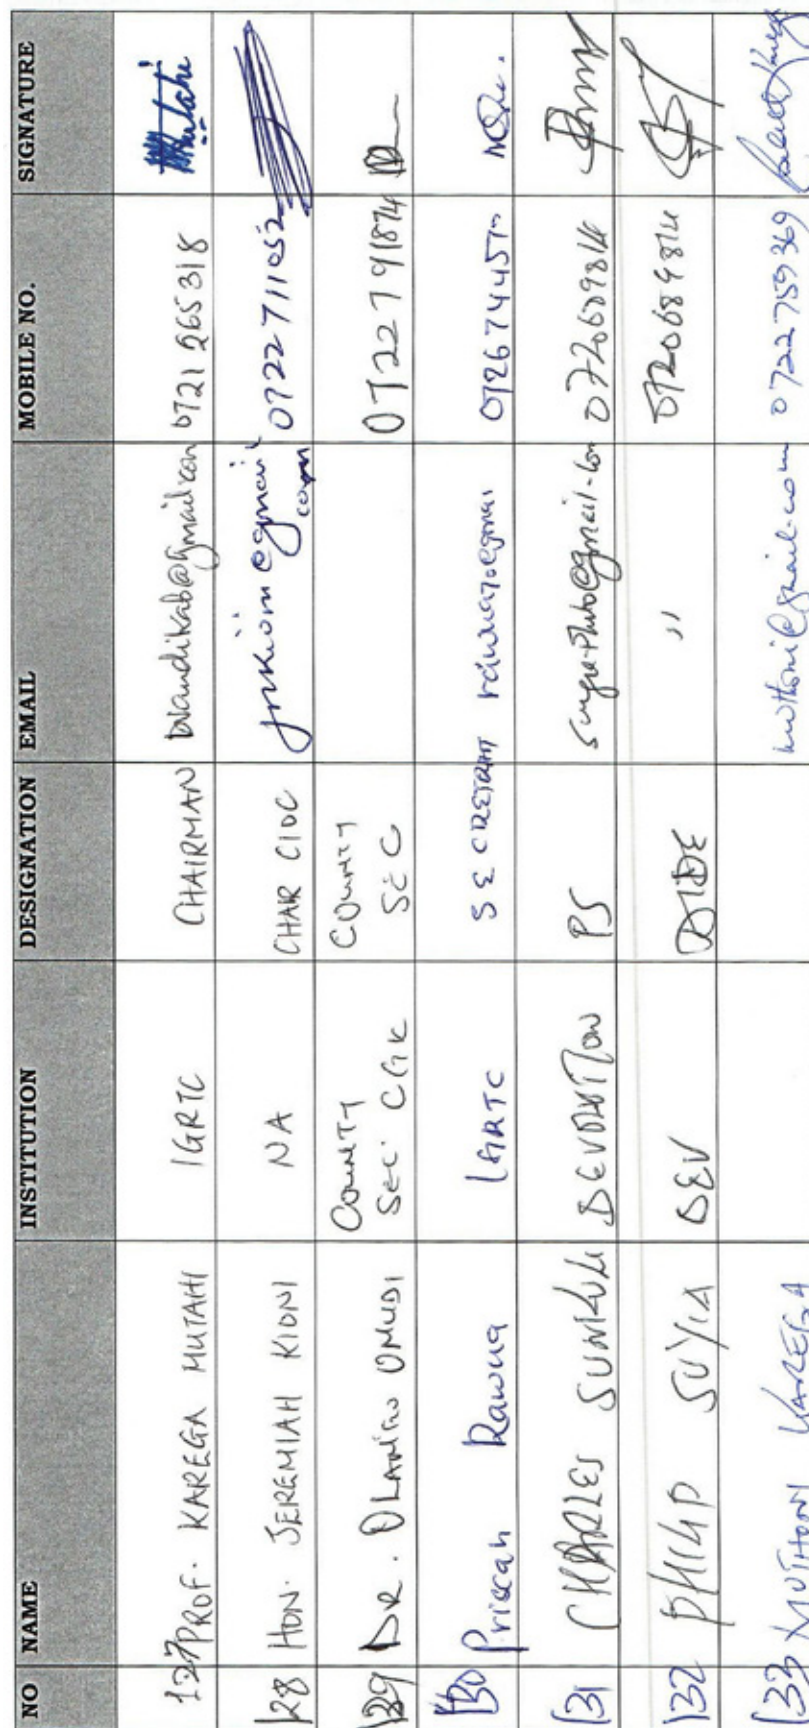 NO NAME INSTITUTION DESIGNATION EMAIL MOBILE NO. SIGNATURE
127 PROF. KAREGA MUTAHI IGRTC CHAIRMAN 0721 265318 Mutahi
128 HON. JEREMIAH KIONI NA CHAR CIOC jnkioni@gmail 0722 711052
com
129 DR. OLANIRO OMUDI COUNTY COUNTY 0722791874
SEC. CGK SEC
130 Priscah Rawna IGRTC SECRETARIAT 0726744570
131 CHARLES SUNKULI DEVOLUTION PS 0720689814
132 PHILIP SUYIA DEV AIDE " 0720689814
133 MUTHONI KAREGA muthoni@gmail.com 0722 759369